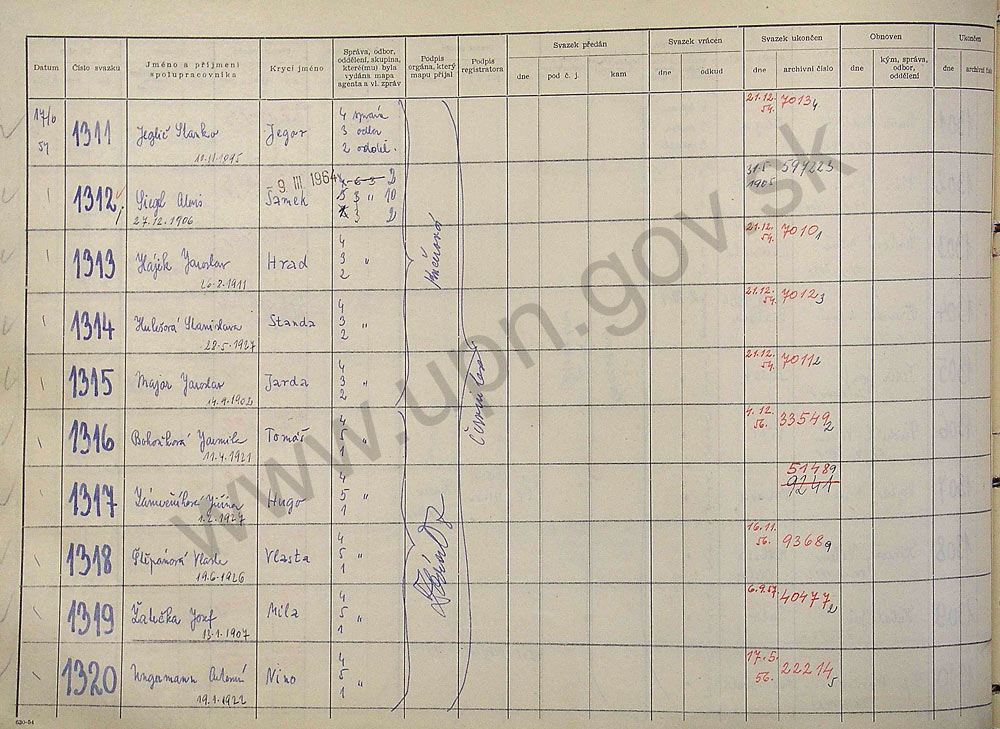 Datum
Číslo svazku
Jméno a příjmení
spolupracovníka
Krycí jméno
Správa, odbor,
oddělení, skupina,
které(mu) byla
vydána mapa
agenta a vl. zpráv
Podpis
orgána, který
mapu přijal
Podpis
registratora
Svazek předán
dne
pod č. j.
kam
Svazek vrácen
dne
odkud
Svazek ukončen
dne
archivní číslo
Obnoven
dne
kým, správa,
odbor,
oddělení
Ukončen
dne
archivní číslo
17/6
54
1311
Jeglič Stanko
10.11.1895
Jegor
4 správa
3 odbor
2 odděl.
21.12.
54.
70134
1312
Siegl Alois
27.12.1906
9 III. 1964
Šamek
31.5
597223
1313
Hájek Jaroslav
26.8.1911
Hrad
4
3 "
2
21.12.
54.
70101
1314
Hulešová Stanislava
28.5.1927
Standa
4
3 "
2
21.12.
54.
70123
1315
Major Jaroslav
14.9.1902
Jarda
4
3 "
2
21.12.
54.
70112
1316
Jarmila
11.4.1921
Tomáš
4
5 "
1
4.12.
56.
335492
1317
Jiřina
1.2.1927
Hugo
4
5 "
1
51489
9241
1318
Štěpánová Vlasta
19.6.1926
Vlasta
4
5 "
1
16.11.
56.
93689
1319
Žalečka Josef
13.1.1907
Míla
4
5 "
1
6.9.57.
404772
1320
Ungermann
19.1.1922
Nino
4
5 "
1
17.5.
56.
222145
www.upn.gov.sk
620-54